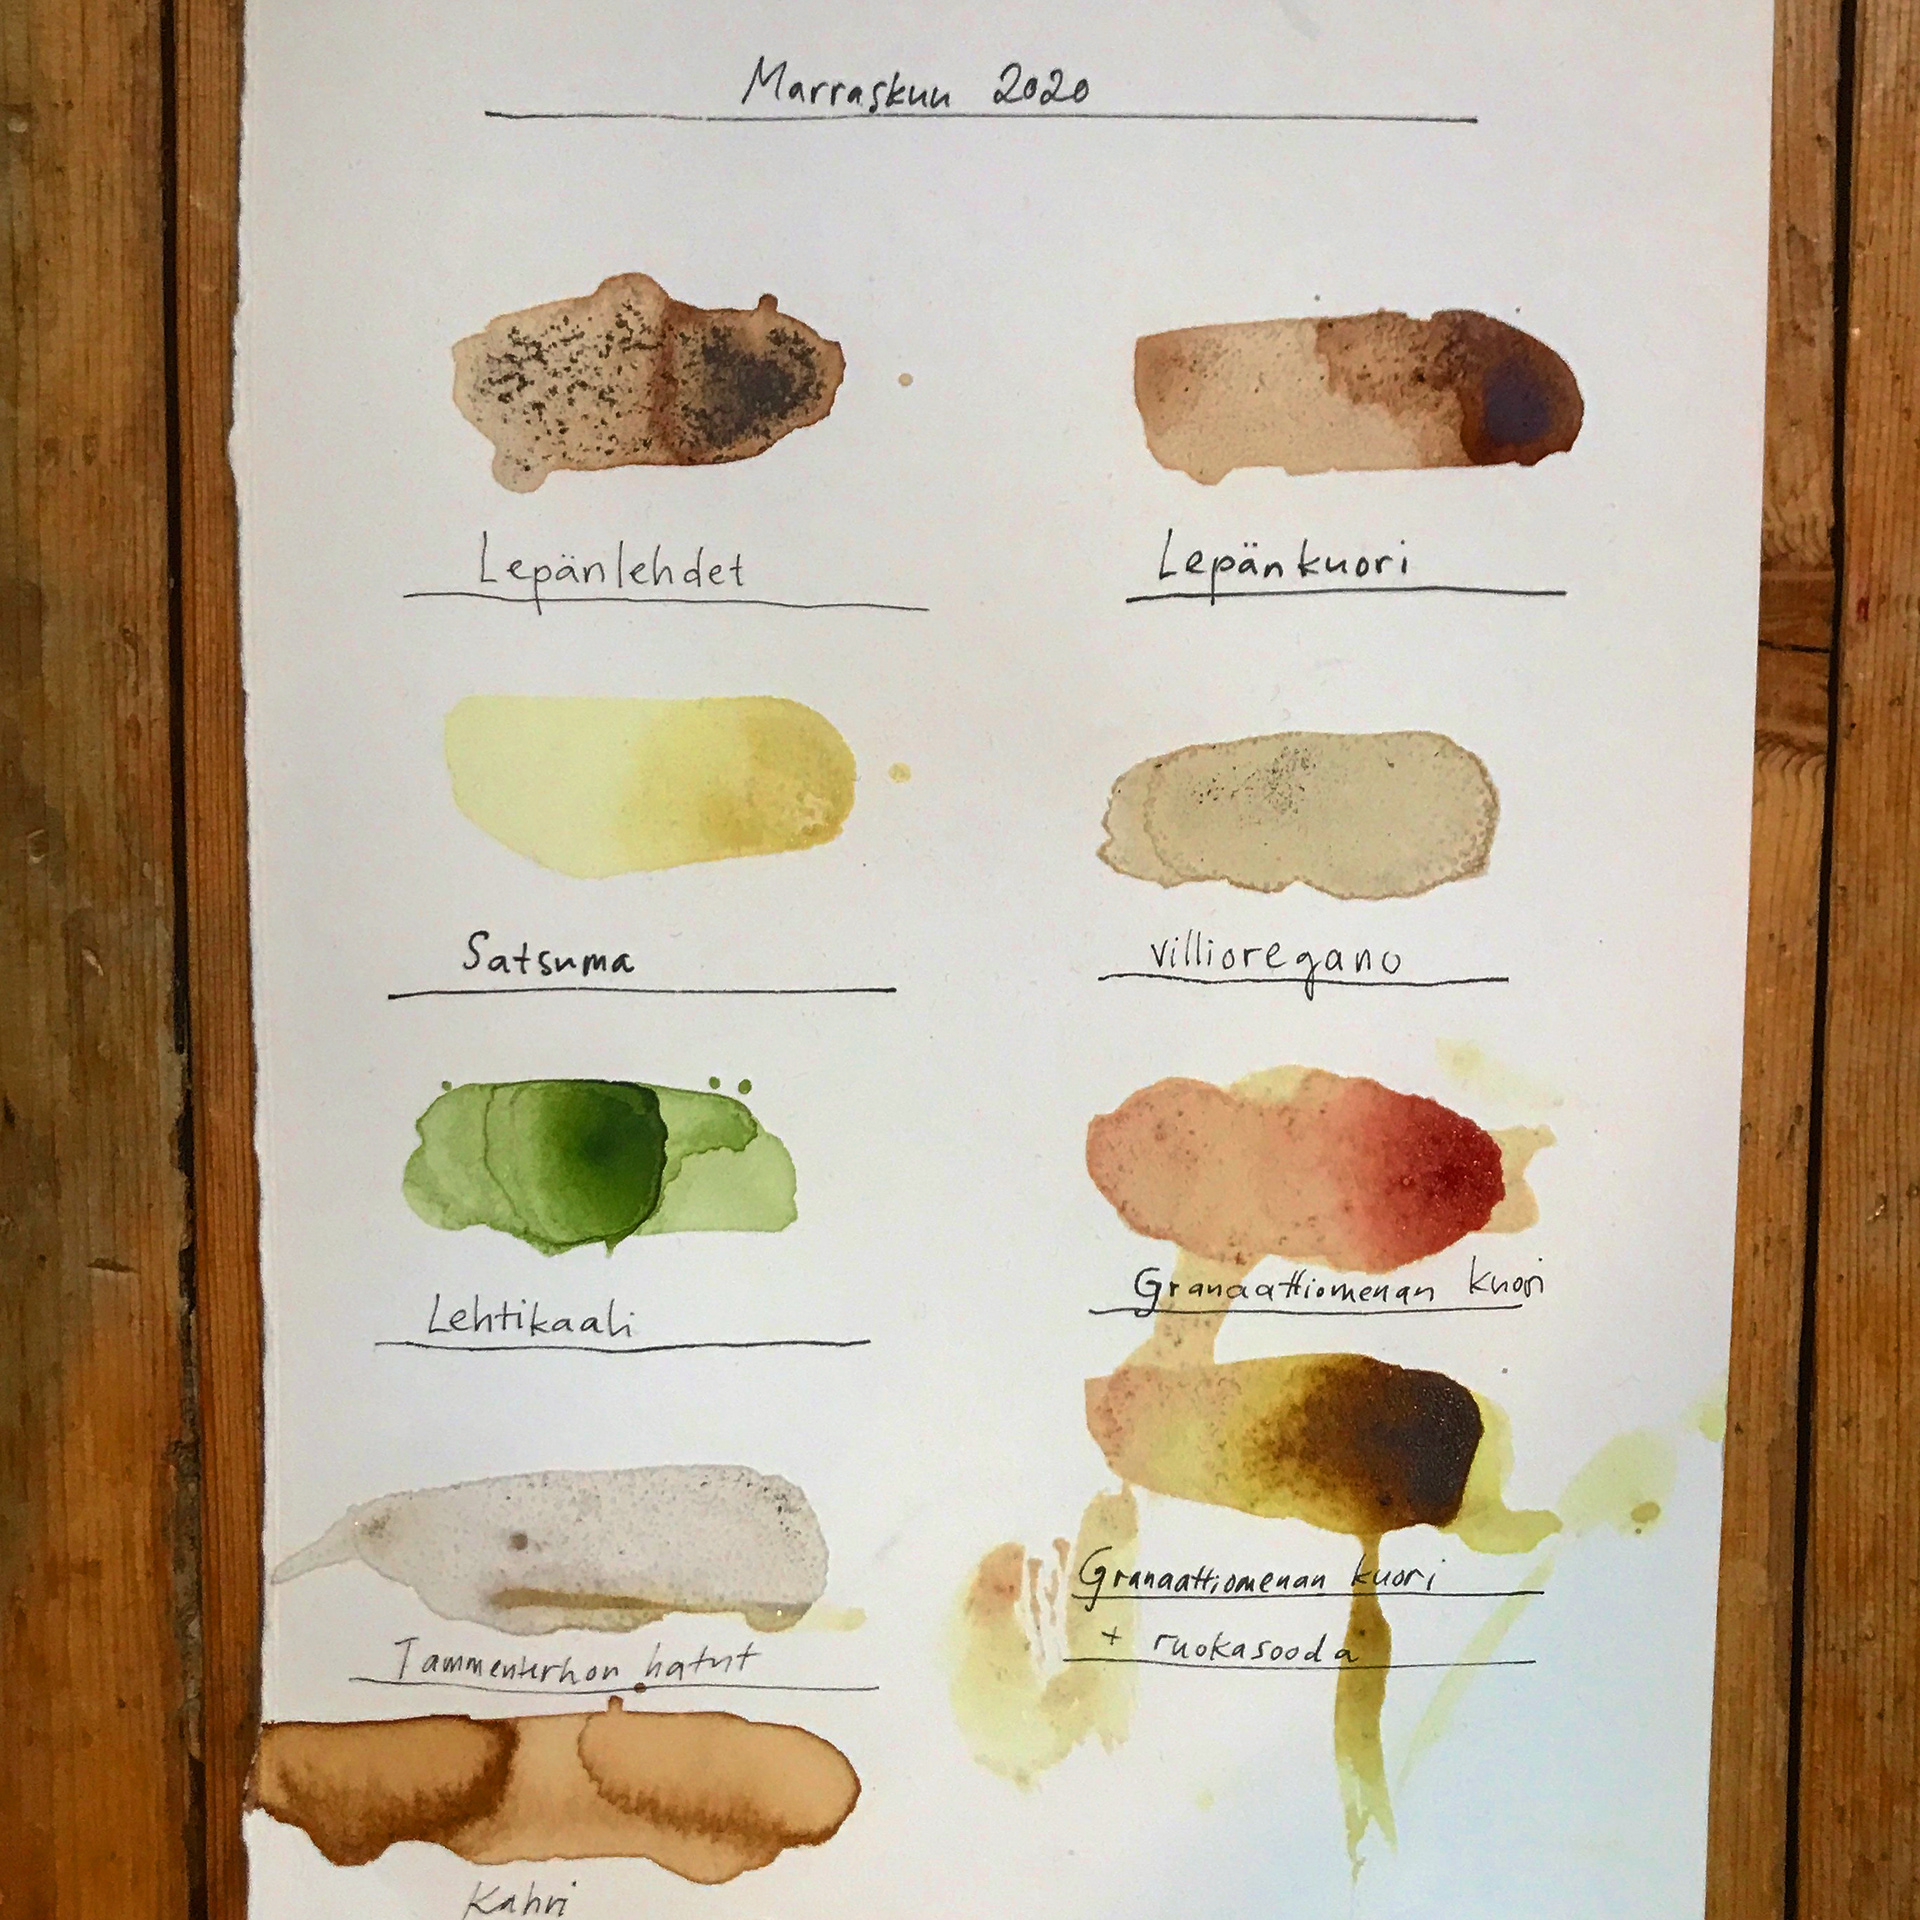 Marraskuu 2020
Lepänlehdet
Lepänkuori
Satsuma
villioregano
Lehtikaali
Granaattiomenan kuori
Granaattiomenan kuori
+ ruokasooda
Tammenterhon hatut
Kahvi